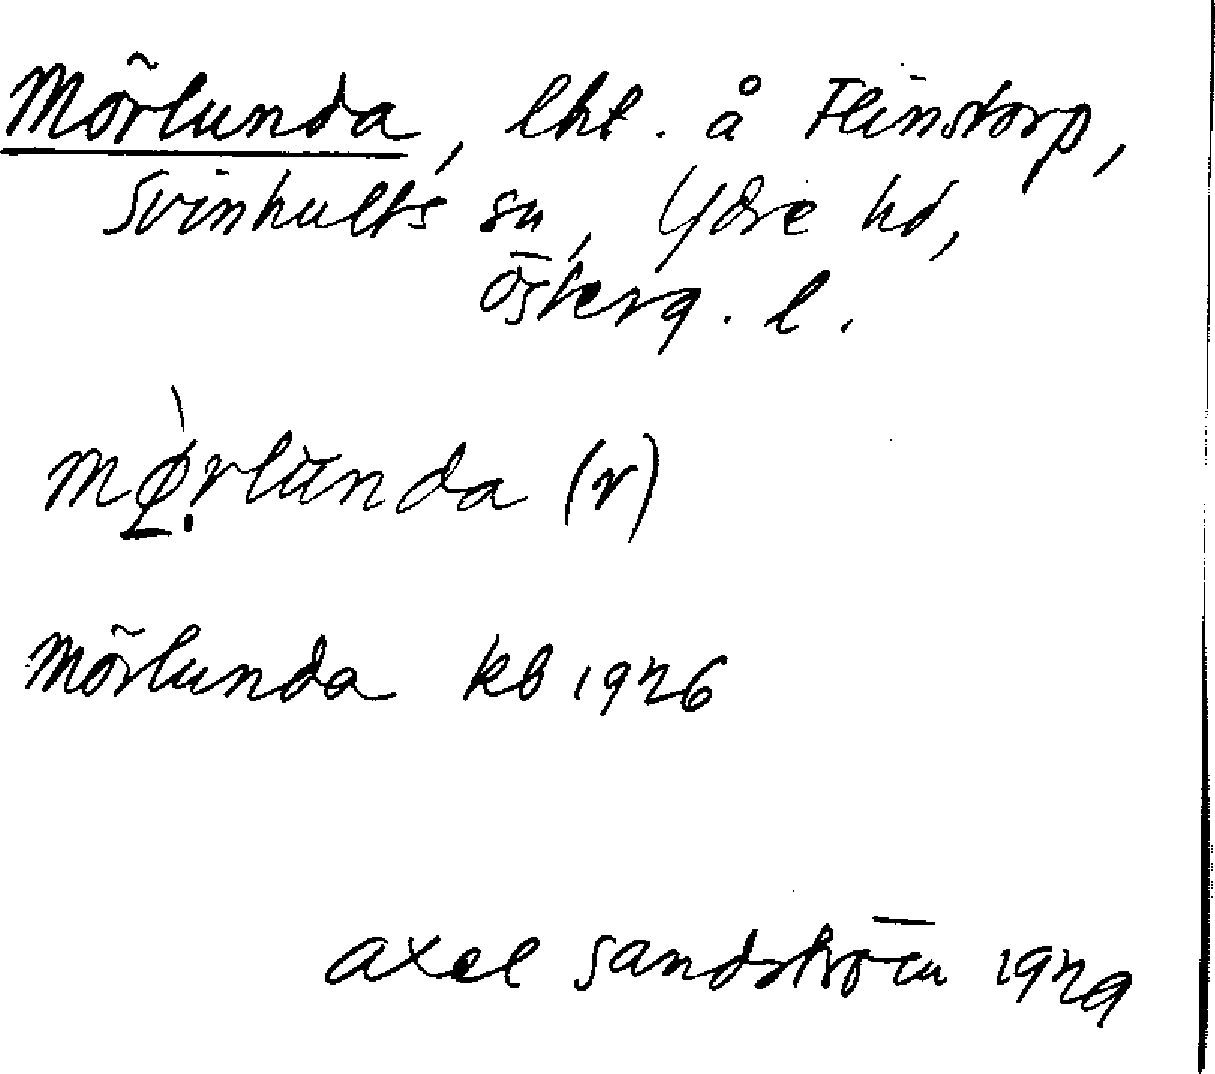 Mörlunda, lht. å Flinstorp,
Svinhults sn, Ydre hd,
Österg. l.
mø̀rlunda (r)
Mörlunda kb 1926
Axel Sandström 1929